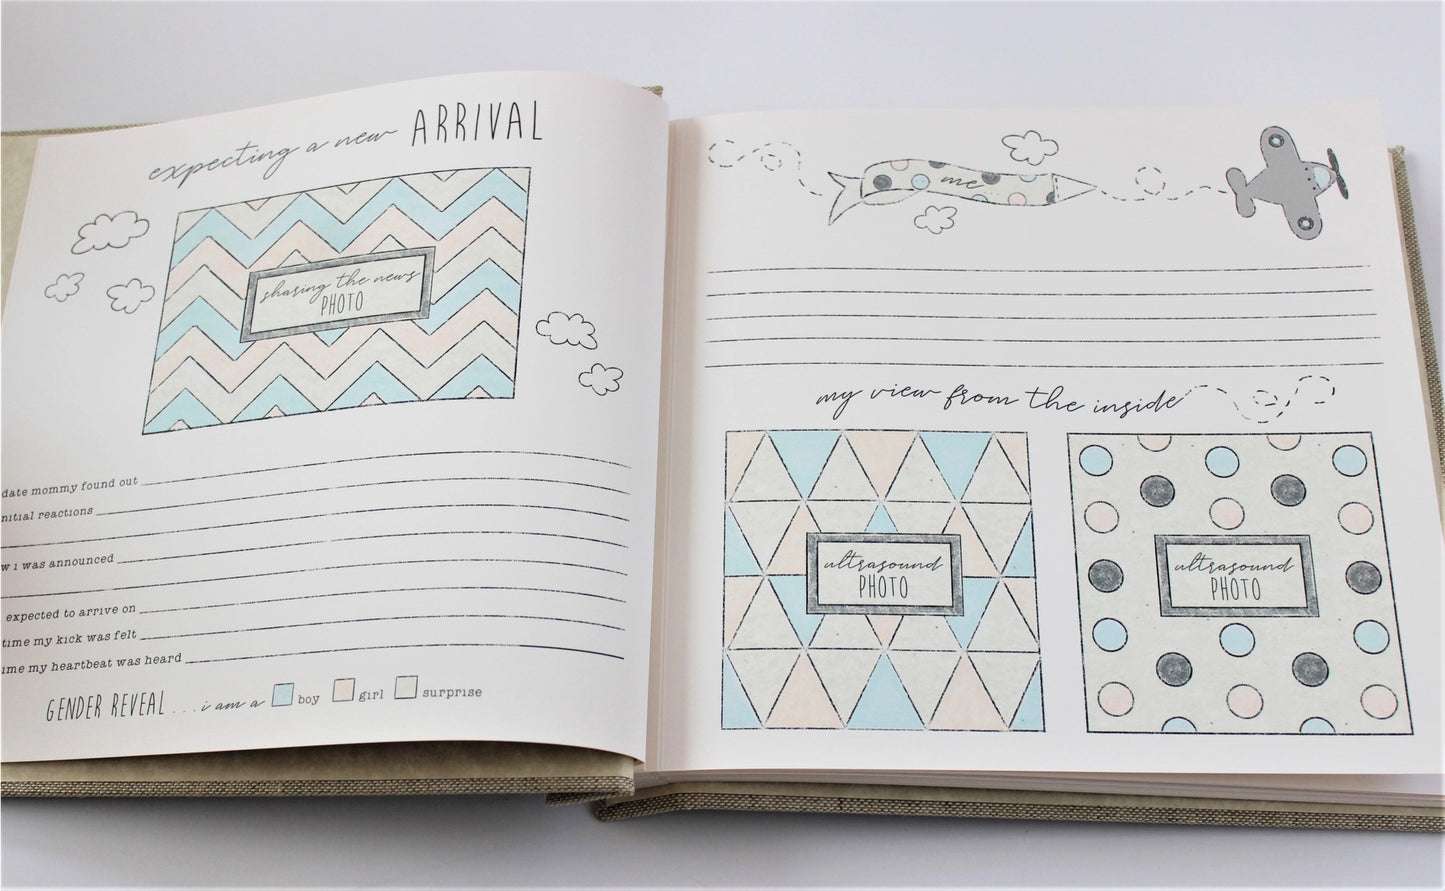 expecting a new ARRIVAL
sharing the news
PHOTO
date mommy found out
nitial reactions
w i was announced
expected to arrive on
time my kick was felt
ime my heartbeat was heard
GENDER REVEAL ... i am a boy girl surprise
me
my view from the inside
ultrasound
PHOTO
ultrasound
PHOTO